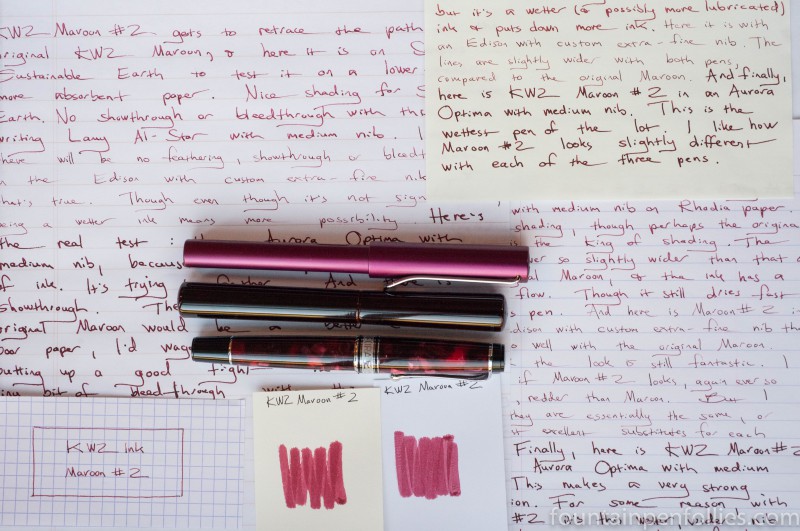 KWZ Maroon #2 gets to retrace the path
original KWZ Maroon, & here it is on S
Sustainable Earth to test it on a lower
more absorbent paper. Nice shading for S
Earth. No showthrough or bleedthrough with th
writing Lamy Al-Star with medium nib. I
have will be no feathering, showthrough or bleedt
in the Edison with custom extra-fine nib
that's true. Though even though it's not sign
being a wetter ink means more possibility. Here's
the real test: Aurora Optima with
medium nib, because
of ink. It's trying And is
showthrough. The
original Maroon would be a better
poor paper, I'd wag
putting up a good fight
tiny bit of bleedthrough with the
but it's a wetter (& possibly more lubricated)
ink & puts down more ink. Here it is with
an Edison with custom extra-fine nib. The
lines are slightly wider with both pens,
compared to the original Maroon. And finally,
here is KWZ Maroon #2 in an Aurora
Optima with medium nib. This is the
wettest pen of the lot. I like how
Maroon #2 looks slightly different
with each of the three pens.
with medium nib on Rhodia paper.
shading, though perhaps the origina
is the King of shading. The
ver so slightly wider than that o
al Maroon, & the ink has a
flow. Though it still dries fast
s pen. And here is Maroon #2 i
dison with custom extra-fine nib th
o well with the original Maroon.
the look is still fantastic. I
if Maroon #2 looks, again ever so
, redder than Maroon. But I
they are essentially the same, or
excellent substitutes for each
Finally, here is KWZ Maroon #2
Aurora Optima with medium
This makes a very strong
ion. For some reason with
#2 on this paper
KWZ Ink
Maroon #2
KWZ Maroon #2
KWZ Maroon #2
fountainpenfollies.com